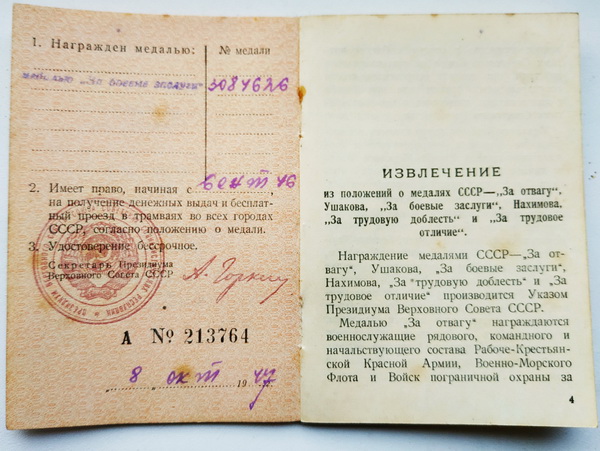 1. Награжден медалью:
№ медали
медалью „За боевые заслуги"
3084626
2. Имеет право, начиная с
сент 46
на получение денежных выдач и бесплат-
ный проезд в трамваях во всех городах
СССР, согласно положению о медали.
3. Удостоверение бессрочное.
Секретарь Президиума
Верховного Совета СССР
А. Горкин
А № 213764
8 окт 1947
ИЗВЛЕЧЕНИЕ
из положений о медалях СССР—„За отвагу",
Ушакова, „За боевые заслуги", Нахимова,
„За трудовую доблесть" и „За трудовое
отличие".
Награждение медалями СССР—„За от-
вагу", Ушакова, „За боевые заслуги",
Нахимова, „За трудовую доблесть" и „За
трудовое отличие" производится Указом
Президиума Верховного Совета СССР.
Медалью „За отвагу" награждаются
военнослужащие рядового, командного и
начальствующего состава Рабоче-Крестьян-
ской Красной Армии, Военно-Морского
Флота и Войск пограничной охраны за
4